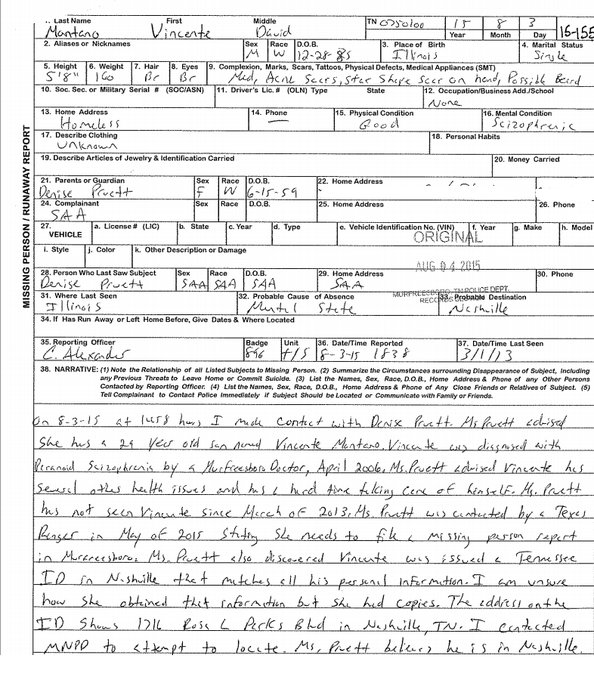 1. Last Name First Middle TN 0750100 15 8 3 15-155
Montano Vincente David Year Month Day
2. Aliases or Nicknames Sex Race D.O.B. 3. Place of Birth 4. Marital Status
M W 12-28-85 Illinois Single
5. Height 6. Weight 7. Hair 8. Eyes 9. Complexion, Marks, Scars, Tattoos, Physical Defects, Medical Appliances (SMT)
5'8" 160 Br Br Med, Acne Scars, Star Shape Scar on hand, Possible Beard
10. Soc. Sec. or Military Serial # (SOC/ASN) 11. Driver's Lic. # (OLN) Type State 12. Occupation/Business Add./School
None
13. Home Address 14. Phone 15. Physical Condition 16. Mental Condition
Homeless — Good Scizophrenic
17. Describe Clothing 18. Personal Habits
Unknown
19. Describe Articles of Jewelry & Identification Carried 20. Money Carried
MISSING PERSON / RUNAWAY REPORT
21. Parents or Guardian Sex Race D.O.B. 22. Home Address
Denise Pruett F W 6-15-59
24. Complainant Sex Race D.O.B. 25. Home Address 26. Phone
SAA
27. VEHICLE a. License # (LIC) b. State c. Year d. Type e. Vehicle Identification No. (VIN) f. Year g. Make h. Model
ORIGINAL
i. Style j. Color k. Other Description or Damage
AUG 04 2015
28. Person Who Last Saw Subject Sex Race D.O.B. 29. Home Address 30. Phone
Denise Pruett SAA SAA SAA SAA
MURFREESBORO, TN POLICE DEPT.
RECORDS
31. Where Last Seen 32. Probable Cause of Absence 33. Probable Destination
Illinois Mental State Nashville
34. If Has Run Away or Left Home Before, Give Dates & Where Located
35. Reporting Officer Badge Unit 36. Date/Time Reported 37. Date/Time Last Seen
C. Alexander 896 415 8-3-15 1838 3/1/13
38. NARRATIVE: (1) Note the Relationship of all Listed Subjects to Missing Person. (2) Summarize the Circumstances surrounding Disappearance of Subject, Including
any Previous Threats to Leave Home or Commit Suicide. (3) List the Names, Sex, Race, D.O.B., Home Address & Phone of any Other Persons
Contacted by Reporting Officer. (4) List the Names, Sex, Race, D.O.B., Home Address & Phone of Any Close Friends or Relatives of Subject. (5)
Tell Complainant to Contact Police immediately if Subject Should be Located or Communicate with Family or Friends.
On 8-3-15 at 1658 hrs I made contact with Denise Pruett. Ms. Pruett advised
She has a 29 year old son named Vincente Montano. Vincente was diagnosed with
Paranoid Scizophrenia by a Murfreesboro Doctor, April 2006. Ms. Pruett advised Vincente has
several other health issues and has a hard time taking care of himself. Ms. Pruett
has not seen Vincente since March of 2013. Ms. Pruett was contacted by a Texas
Ranger in May of 2015 stating she needs to file a missing person report
in Murfreesboro. Ms. Pruett also discovered Vincente was issued a Tennessee
ID in Nashville that matches all his personal information. I am unsure
how she obtained that information but she had copies. The address on the
ID shows 1716 Rosa L Parks Blvd in Nashville, TN. I contacted
MNPD to attempt to locate. Ms. Pruett believes he is in Nashville.